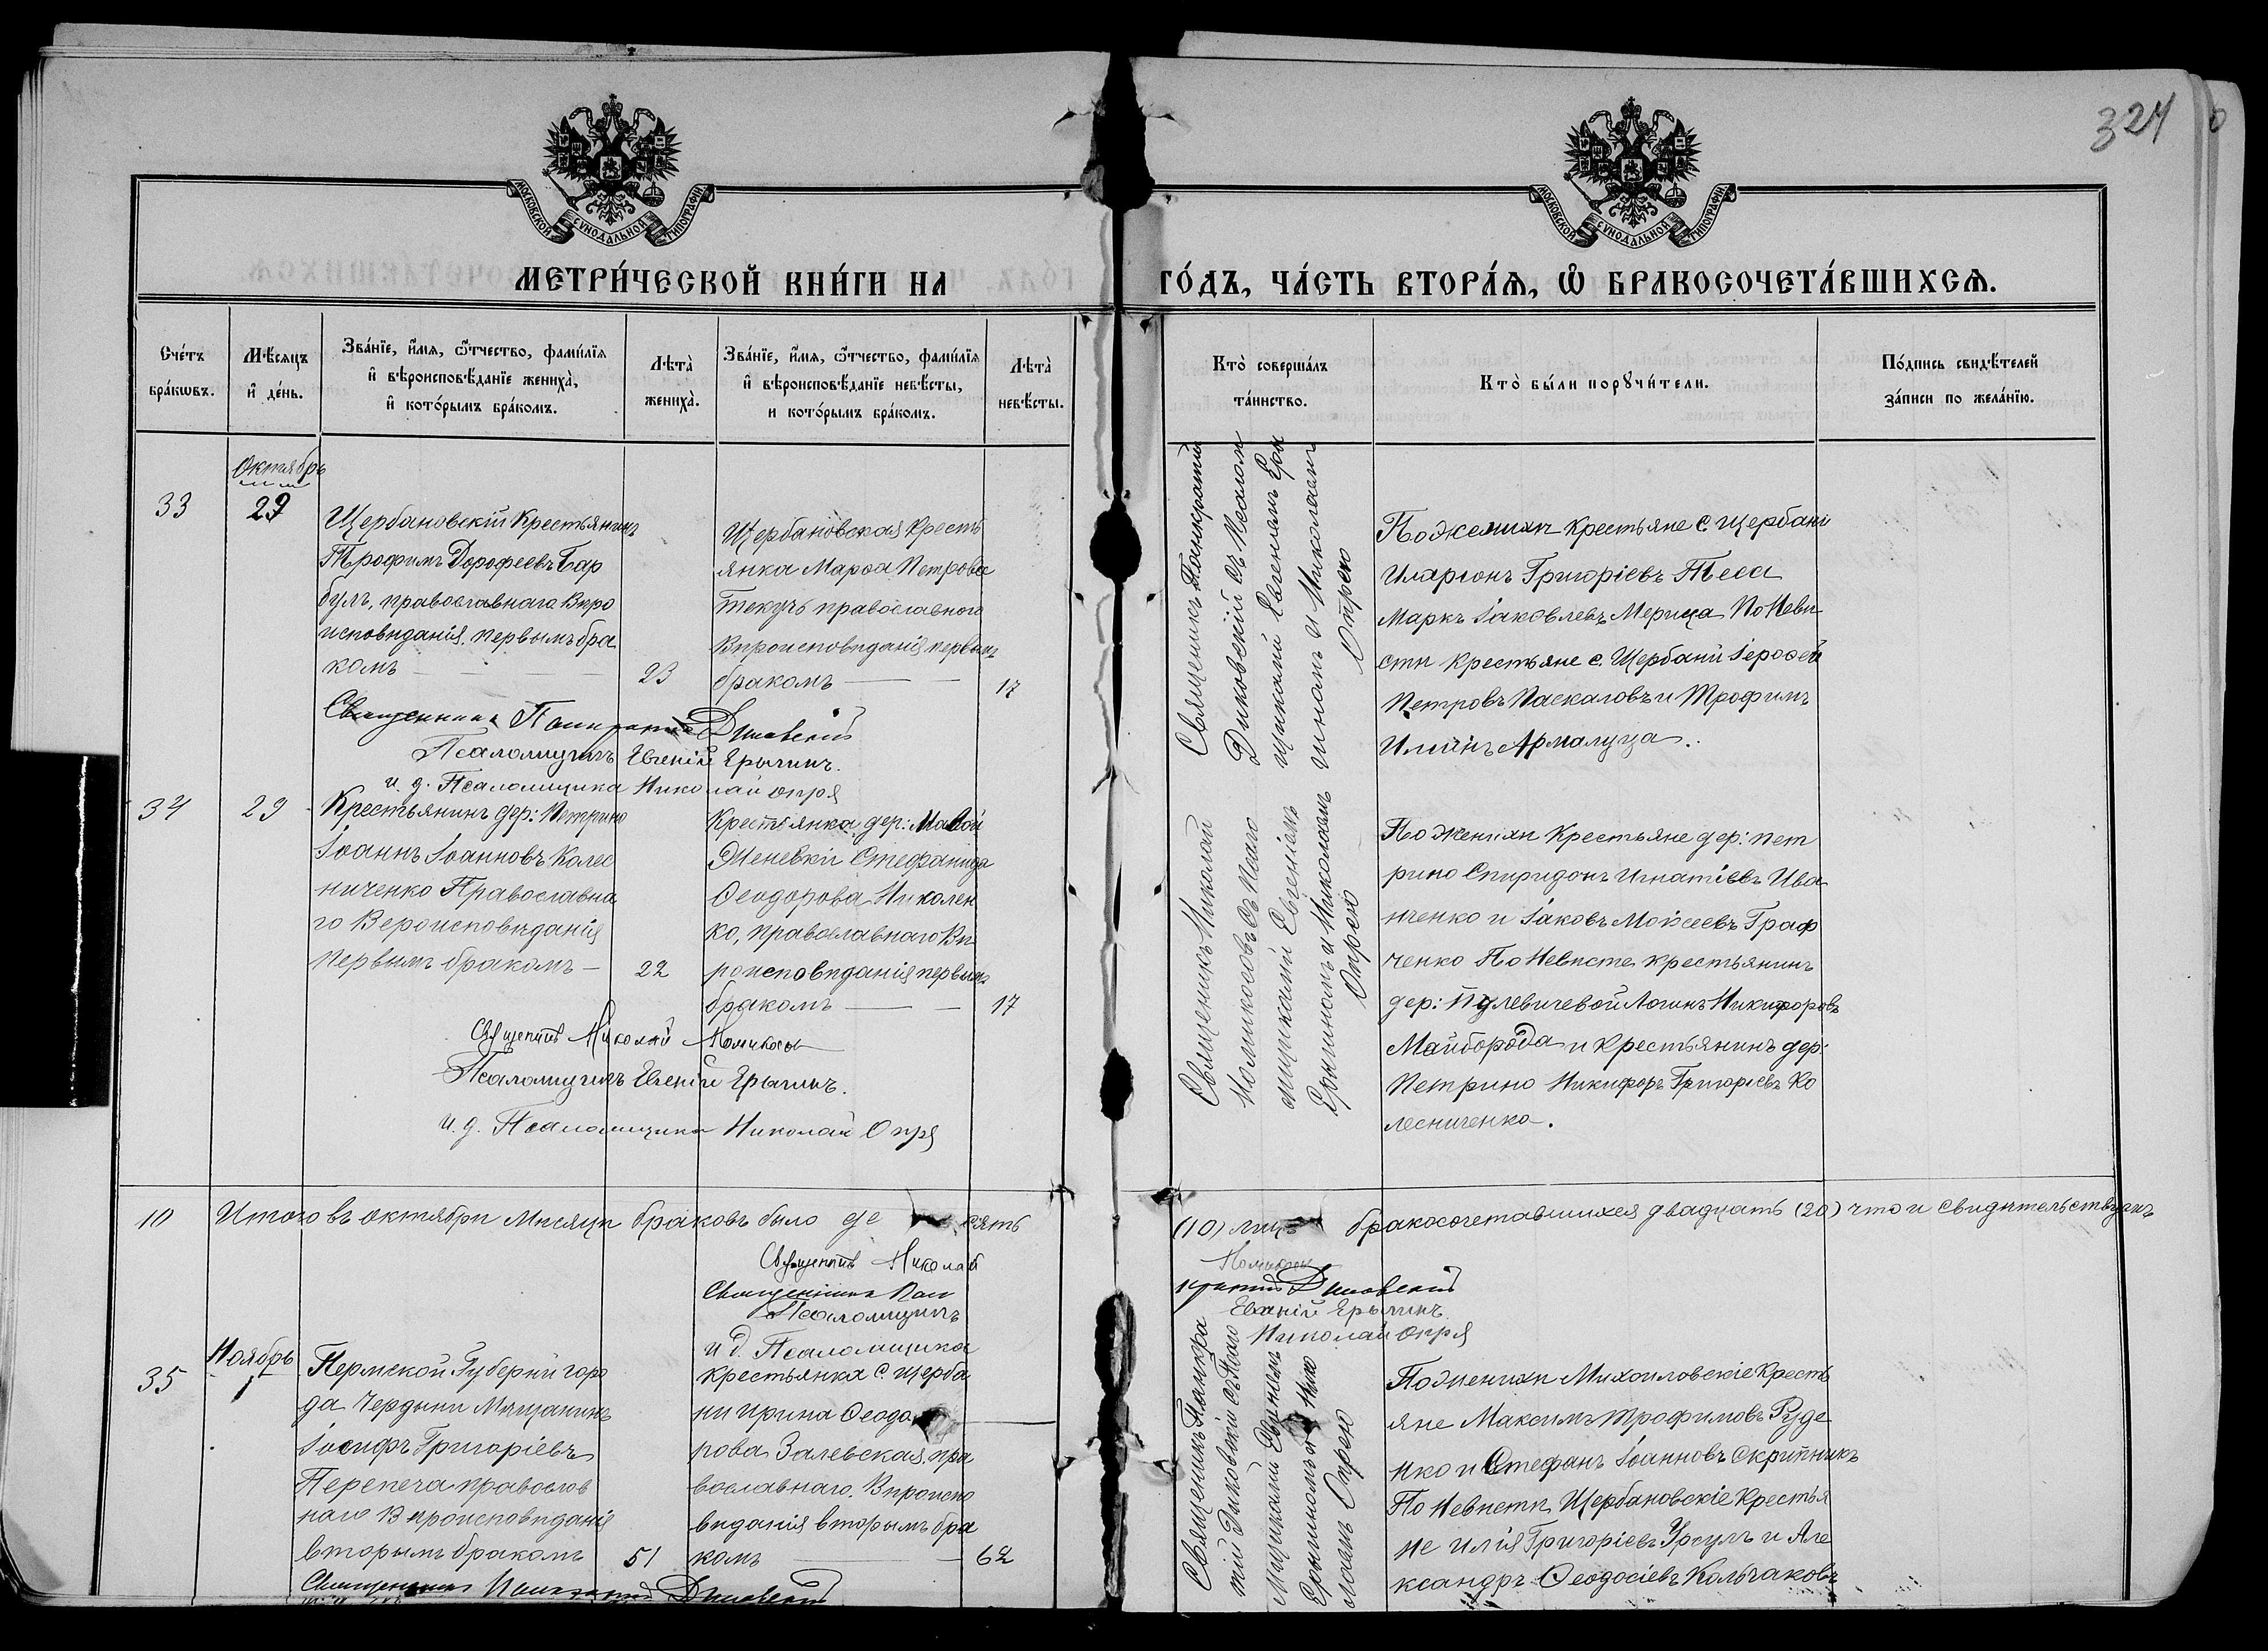 324
МОСКОВСКОЙ СѴНОДАЛЬНОЙ ТИПОГРАФІИ
МОСКОВСКОЙ СѴНОДАЛЬНОЙ ТИПОГРАФІИ
МЕТРИ́ЧЕСКОЙ КНИ́ГИ НА ГО́ДЪ, ЧА́СТЬ ВТОРА́Ѧ, Ѽ БРАКОСОЧЕТА́ВШИХСѦ.
Сче́тъ бра́кѡвъ.
Мѣ́сяцъ и҆ де́нь.
Зва́нїе, и҆́мя, ѻ҆́тчество, фами́лїя
и҆ вѣроисповѣ́данїе жениха̀,
и҆ кото́рымъ бра́комъ.
Лѣта̀ жениха̀.
Зва́нїе, и҆́мя, ѻ҆́тчество, фами́лїя
и҆ вѣроисповѣ́данїе невѣ́сты,
и кото́рымъ бра́комъ.
Лѣта̀ невѣ́сты.
Кто̀ соверша́лъ
та́инство.
Кто̀ бы́ли порꙋчи́тели.
По́дпись свидѣ́телей
за́писи по жела́нїю.
33
Октябрь
29
Щербановскій Крестьянинъ
Трофимъ Дорофеевъ Бар
булъ, православнаго Вѣро
исповѣданія, первымъ бра
комъ
23
Щербановская Кресть
янка Марѳа Петрова
Текучъ православного
Вѣроисповѣданія первымъ
бракомъ
17
Священникъ Панкратій
Диковскій съ Псалом
щиками Евгеніемъ Еры
гинамъ и Николаемъ
Опрею
По женихѣ Крестьяне с Щербани
Иларіонъ Григоріевъ Теса
Маркъ Іаковлевъ Мерица По Невѣ
стѣ крестьяне с. Щербани Іероѳей
Петровъ Паскаловъ и Трофимъ
Илиинъ Армалуца.
Священникъ Панкратій Диковскій
Псаломщикъ Евгеній Ерыгинъ.
и. д. Псаломщика Николай Опря
34
29
Крестьянинъ дер: Петрино
Іоаннъ Іоанновъ Колес
ниченко Православна
го Вероисповѣданія
первымъ бракомъ
22
Крестьянка дер: Малой
Женевки Стефанида
Ѳеодорова Николен
ко, православнаго Вѣ
роисповѣданія первымъ
бракомъ
17
Священникъ Николай
съ Псало
мщиками Евгеніемъ
Ерыгинамъ и Николаемъ
Опрею
По женихѣ Крестьяне дер: Пет
рино Спиридонъ Игнатіевъ Ива
нченко и Іаковъ Моисеевъ Граф
ченко По Невѣсте крестьянинъ
дер: Логинъ Никифоровъ
Майборода и крестьянинъ дер:
Петрино Никифоръ Григоріевъ Ко
лесниченко.
Священникъ Николай
Псаломщикъ Евгеній Ерыгинъ.
и. д. Псаломщика Николай Опря
10 Итого въ октябрѣ Мѣсяцѣ браковъ было де сять (10) лицъ бракосочетавшихся двадцать (20) что и свидѣтельствуемъ
Священникъ Николай
Священникъ Пан кратій Диковскій
Псаломщикъ Евгеній Ерыгинъ
и д. Псаломщика Николай Опря
35
Ноябрь
1
Пермской Губерніи горо
да Чердыни Мѣщанинъ
Іосифъ Григоріевъ
Перепеча православ
наго Вѣроисповѣданія
вторымъ бракомъ
51
крестьянка с Щерба
ни Ирина Ѳеодо
рова Залевская, пра
вославнаго. Вѣроиспо
вѣданія вторымъ бра
комъ
62
Священникъ Панкра
тій Диковскій съ Псало
мщиками Евгеніемъ
Ерыгиномъ и Нико
лаемъ Опрею
По женихѣ Михаиловскіе Кресть
яне Максимъ Трофимовъ Руде
нко и Стефанъ Іоанновъ Скрипникъ
По Невѣстѣ Щербановскіе Крестья
не Илія Григоріевъ Урсулъ и Але
ксандръ Ѳеодосіевъ Колчаковъ
Священникъ Панкратій Диковскій